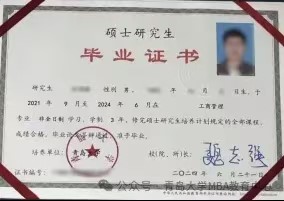 硕士研究生
毕业证书
研究生 性别 男， 年 月 日生，于
2021 年 9 月至 2024 年 6 月在 工商管理
专业 非全日制 学习，学制 3 年，修完硕士研究生培养计划规定的全部课程，
成绩合格，毕业论文答辩通过，准予毕业。
培养单位： 青岛大学 校(院、所)长：
证书编号： 二〇二四年 六 月二十一日
公众号 · 青岛大学MBA教育中心